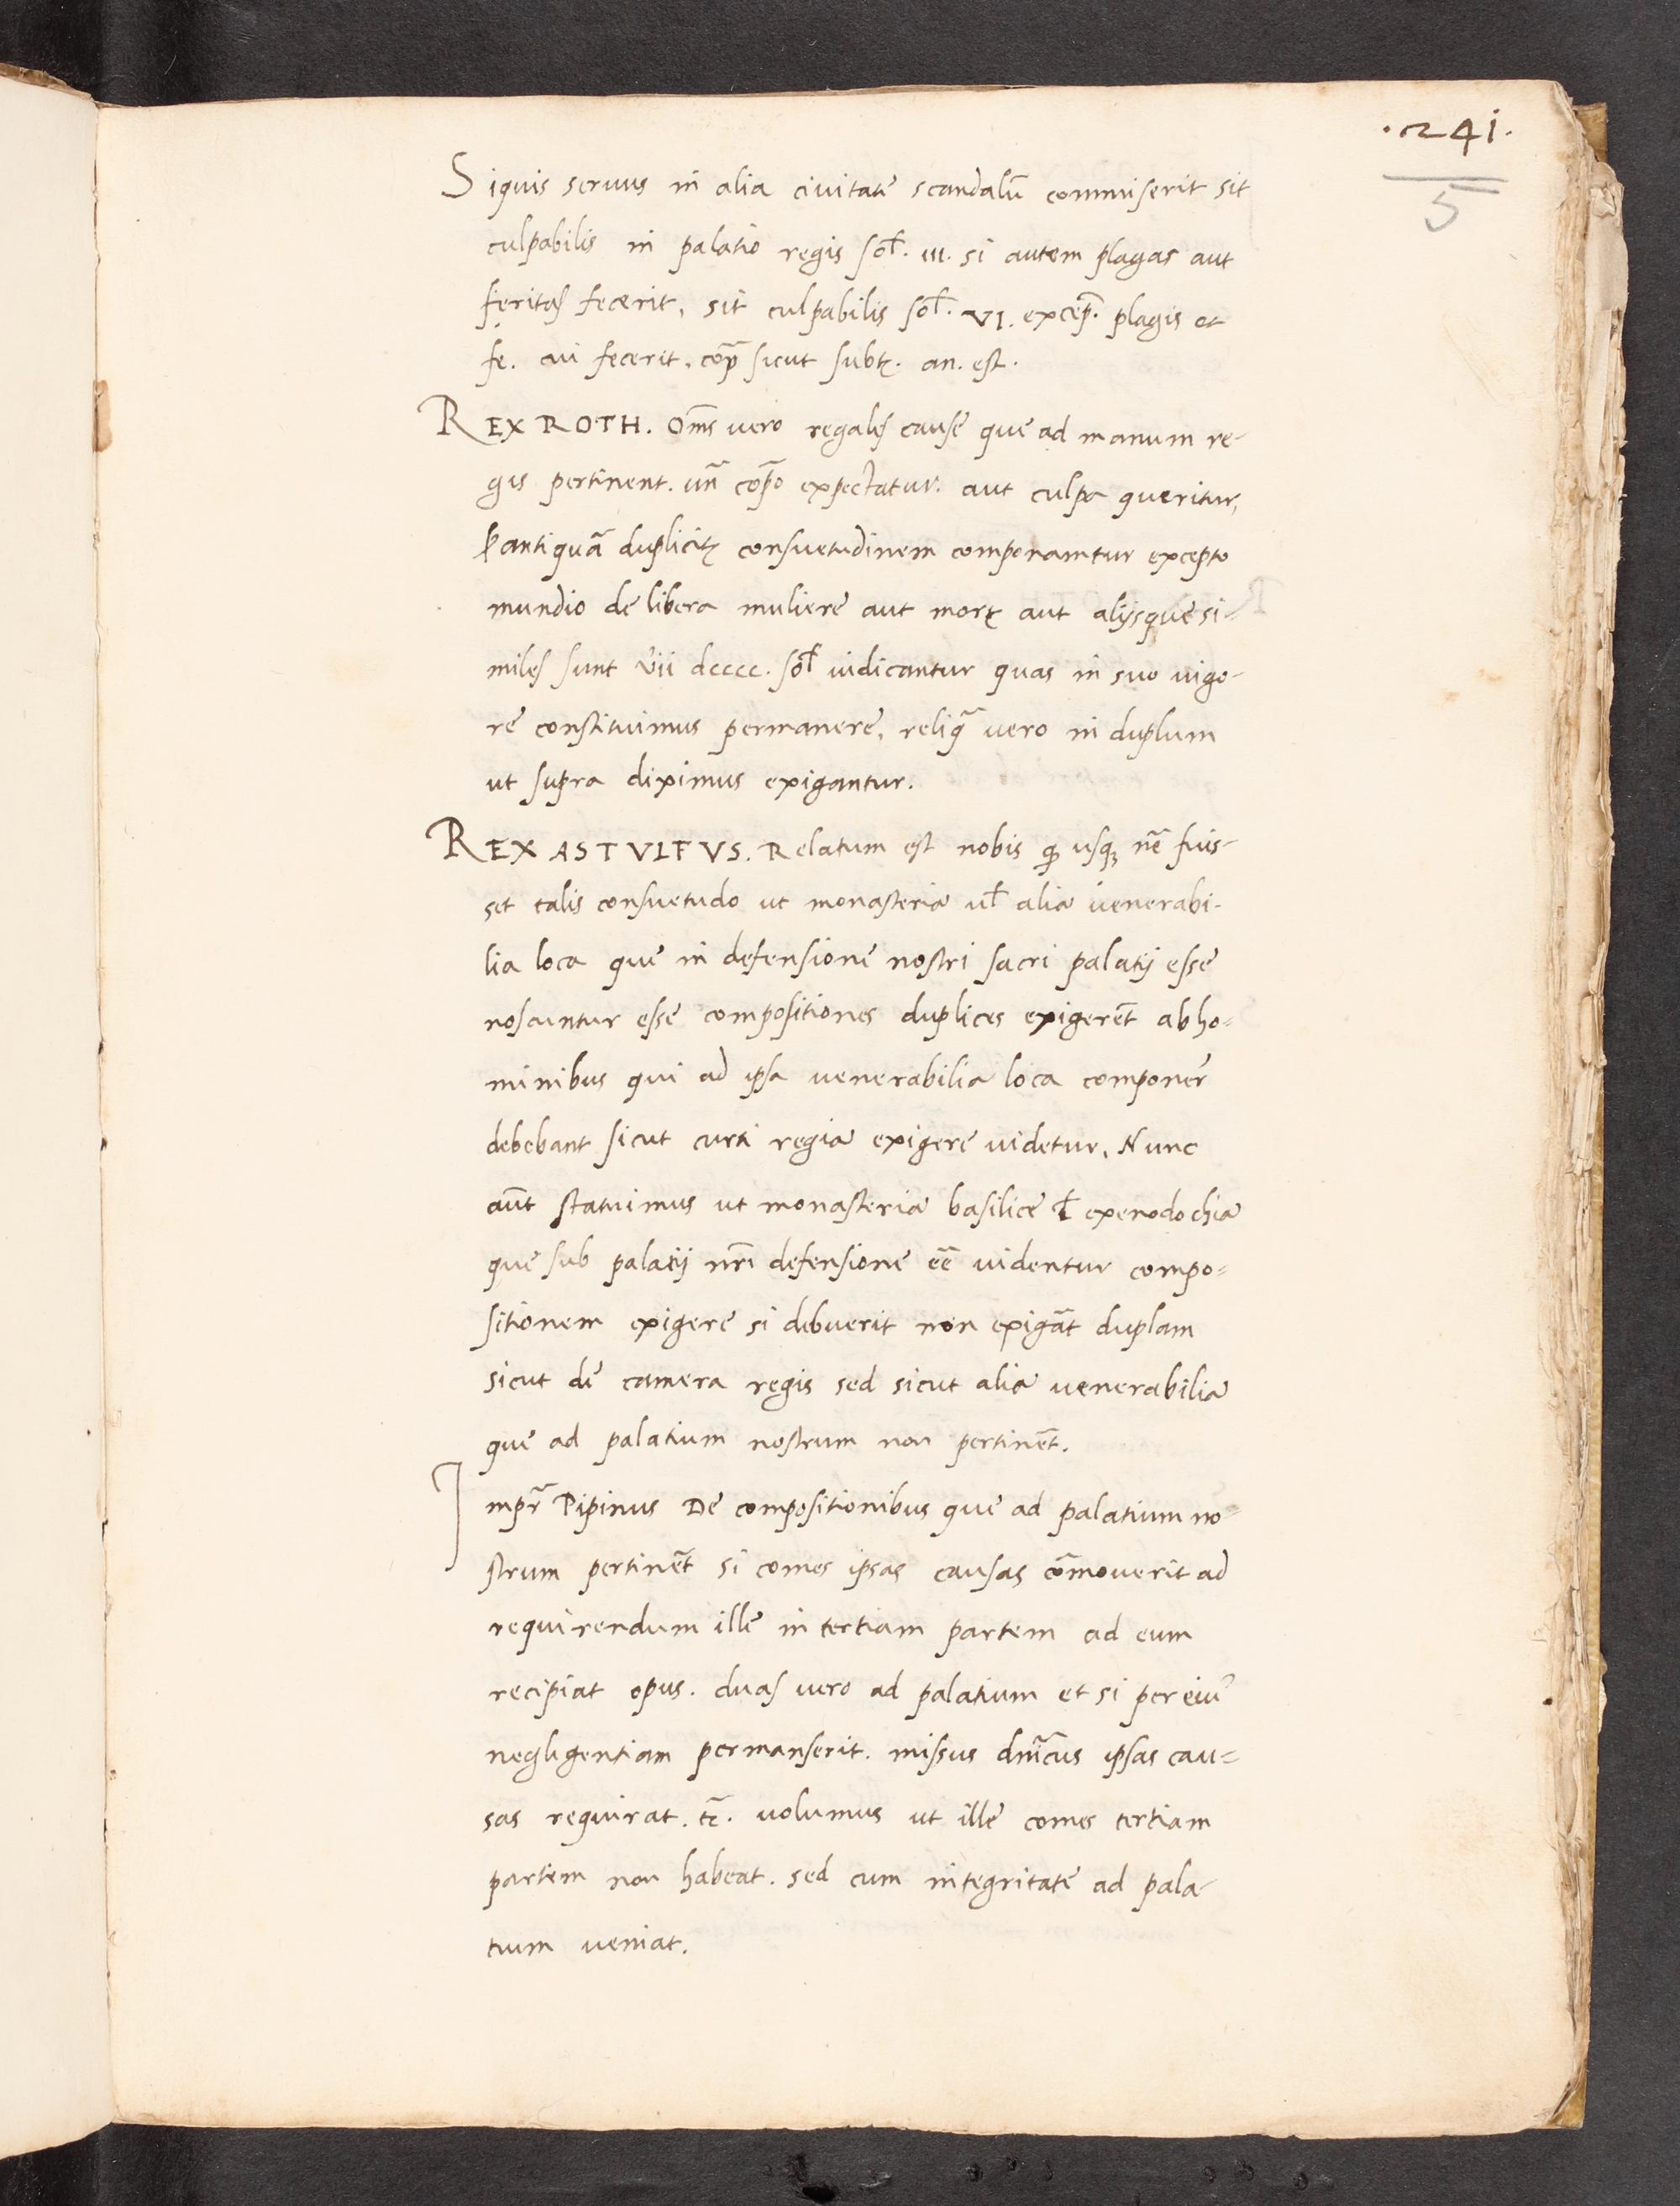 .241.
5
Siquis seruus in alia ciuitate scandalũ commiserit sit
culpabilis in palatio regis sol̃. III. si autem plagas aut
feritas fecerit, sit culpabilis sol̃. VI. excep̃. plagis et
fe. cui fecerit, cõp̃ sicut subt̃. an. est.
REX ROTH. Om̃s vero regales cause que ad manum re-
gis pertinent. un̄ cõpõ expectatur. aut culpa queritur,
ꝑ antiquã duplicit̃ consuetudinem componantur excepto
mundio de libera muliere aut mort̃ aut alijsque si-
miles sunt ṽii dcccc. sol̃ iudicantur quas in suo uigo-
re constituimus permanere, reliq̃ vero in duplum
ut supra diximus exigantur.
REX ASTVLFVS. Relatum est nobis ꝙ usqꝫ nc̃ fuis-
set talis consuetudo ut monasteria ul̃ alia venerabi-
lia loca que in defensione nostri sacri palatij esse
noscuntur esse compositiones duplices exigerẽt ab ho-
minibus qui ad ipsa venerabilia loca componer̃
debebant sicut curti regia exigere videtur. Nunc
aũt statuimus ut monasteria basilice ł exenodochia
que sub palatij nr̃i defensione eẽ videntur compo-
sitionem exigere si debuerit non exigãt duplam
sicut de camera regis sed sicut alia venerabilia
que ad palatium nostrum non pertinẽt.
Impr̃ Pipinus De compositionibus que ad palatium no-
strum pertinẽt si comes ipsas causas cõmouerit ad
requirendum ille in tertiam partem ad eum
recipiat opus. duas vero ad palatium et si per eiuˀ
negligentiam permanserit. missus dñicus ipsas cau-
sas requirat. t̃c. volumus ut ille comes tertiam
partem non habeat. sed cum integritate ad pala-
tium veniat.